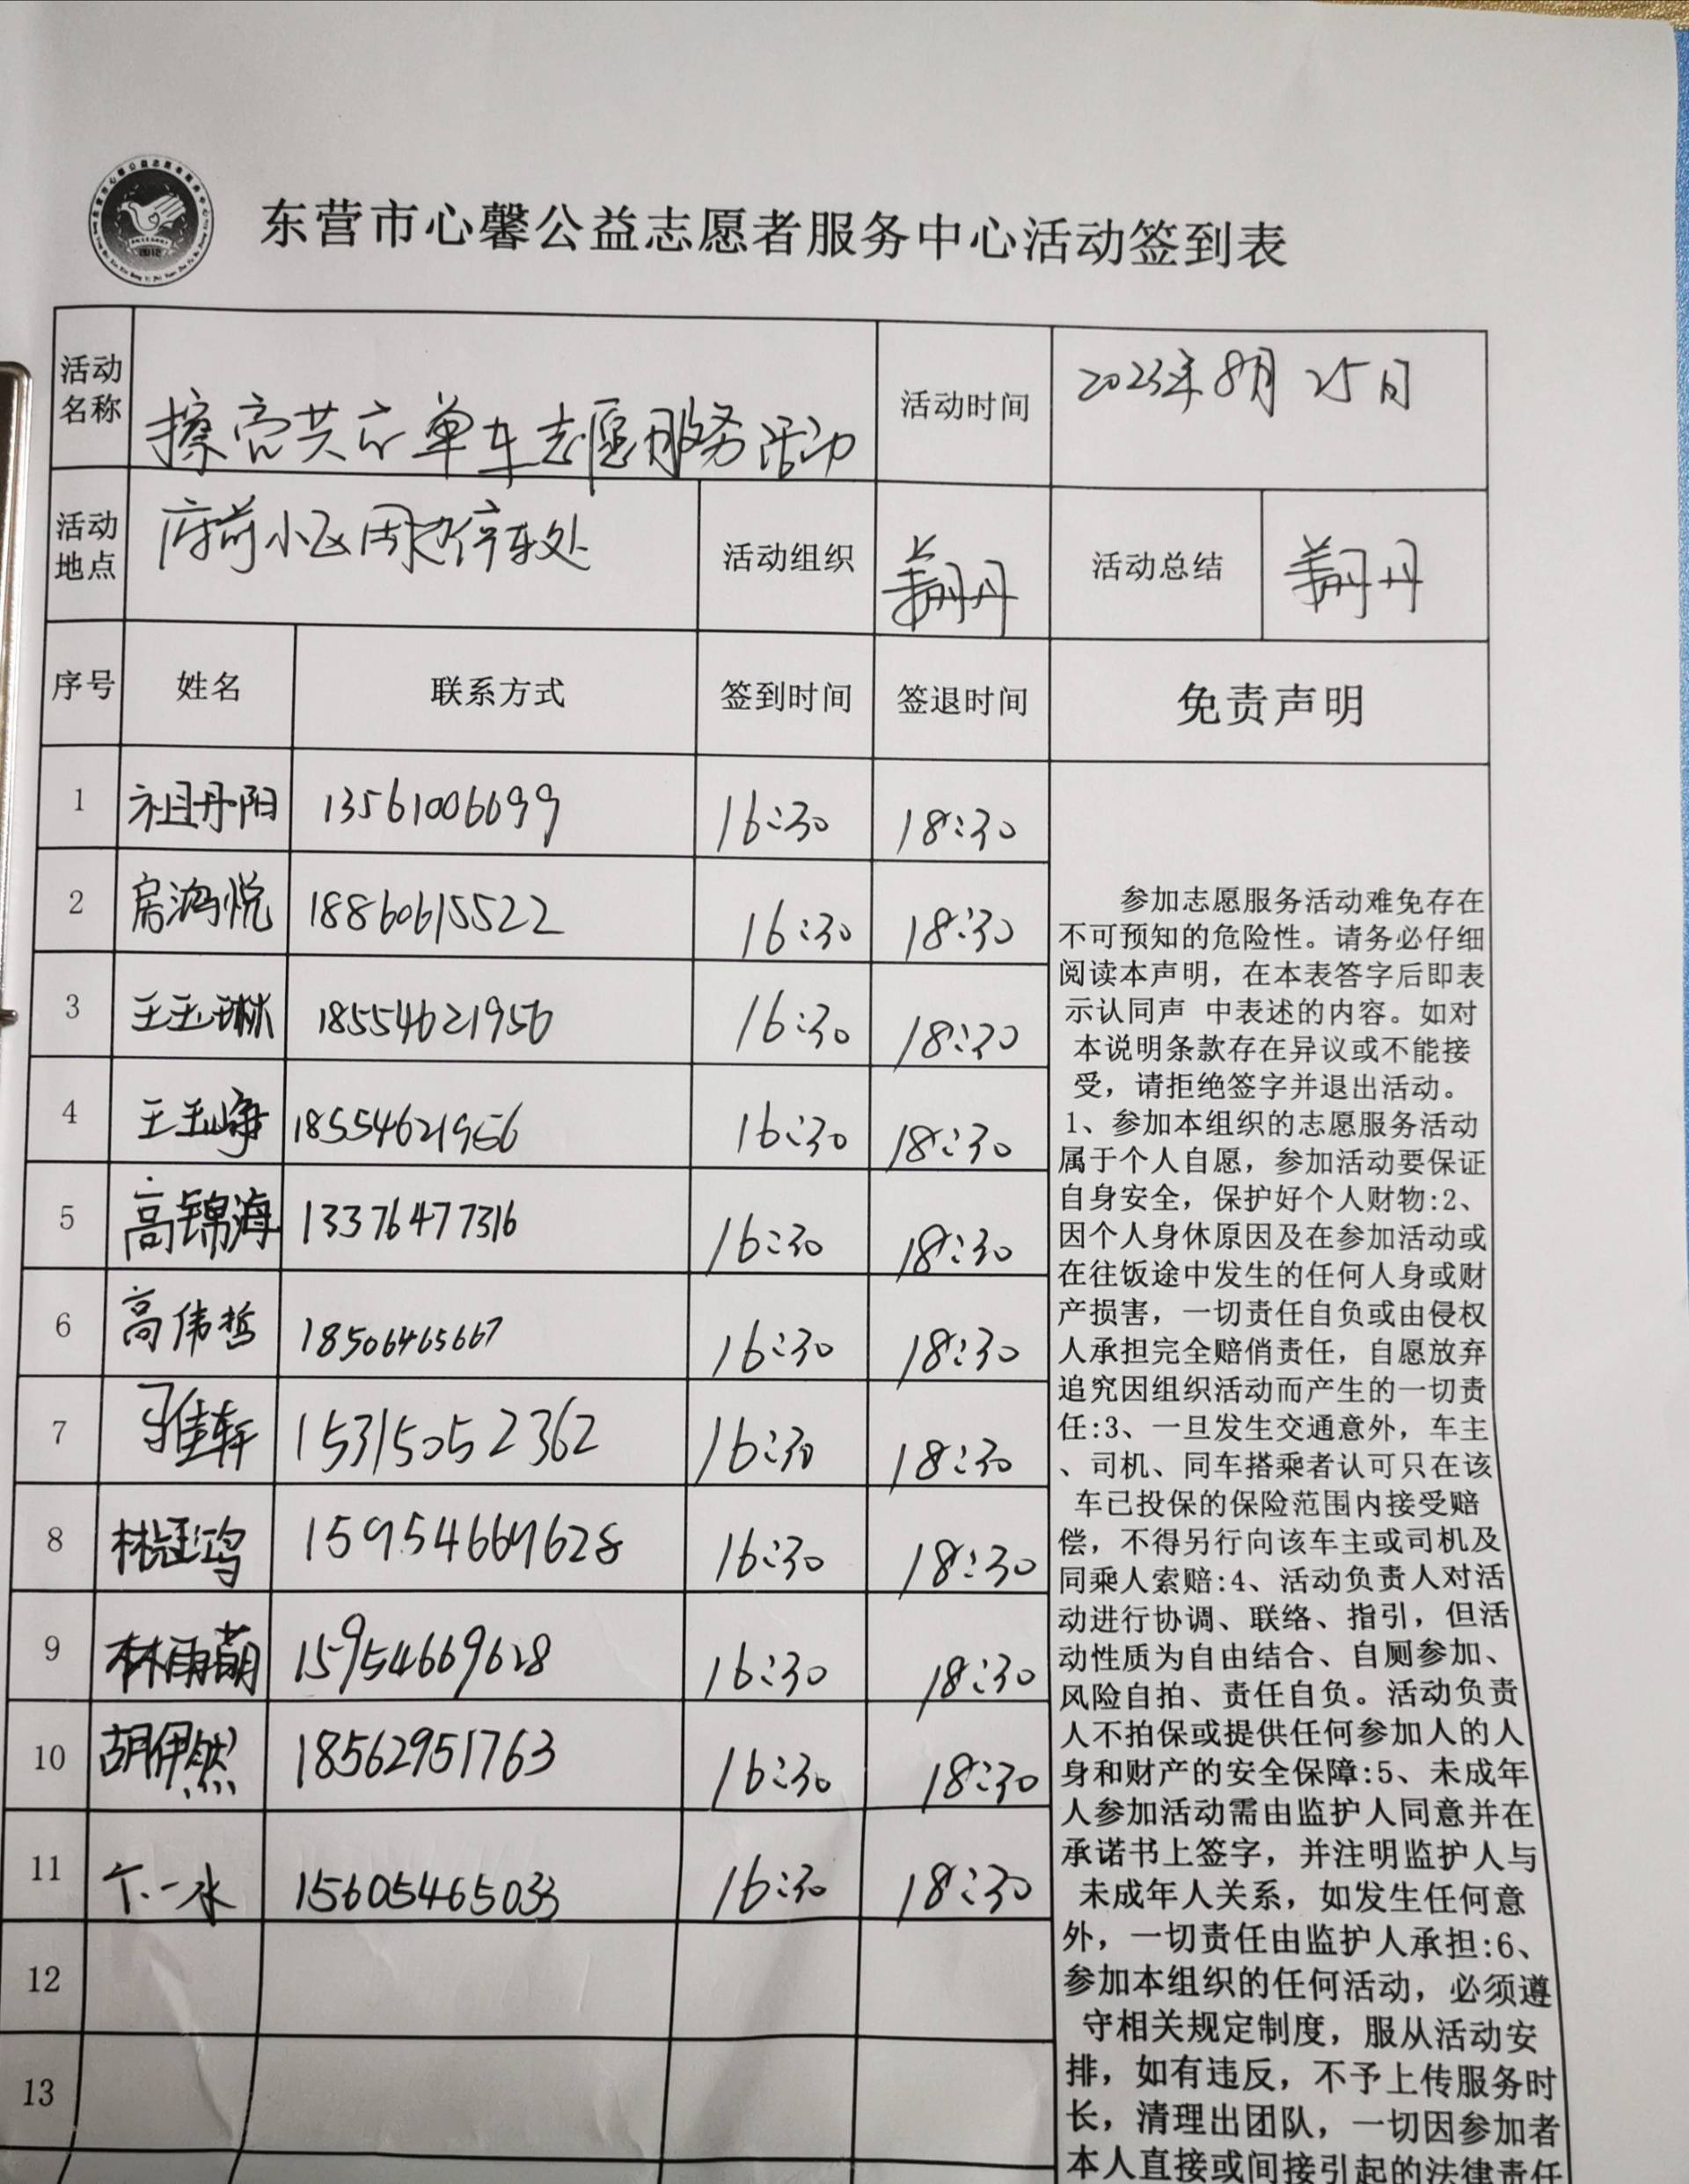 东营市心馨公益志愿者服务中心活动签到表
活动名称 擦亮共享单车志愿服务活动 活动时间 2023年8月25日
活动地点 府前小区周边停车处 活动组织 姜丹丹 活动总结 姜丹丹
序号 姓名 联系方式 签到时间 签退时间 免责声明
1 祖丹阳 13561006699 16:30 18:30
2 房鸿悦 18860615522 16:30 18:30
3 王玉琳 18554621956 16:30 18:30
4 王玉峥 18554621956 16:30 18:30
5 高锦海 13376477316 16:30 18:30
6 高伟哲 18506465667 16:30 18:30
7 15315052362 16:30 18:30
8 林冠鸿 15954669628 16:30 18:30
9 林雨萌 15954669628 16:30 18:30
10 胡伊然 18562951763 16:30 18:30
11 一水 15605465033 16:30 18:30
12
13
参加志愿服务活动难免存在
不可预知的危险性。请务必仔细
阅读本声明，在本表答字后即表
示认同声 中表述的内容。如对
本说明条款存在异议或不能接
受，请拒绝签字并退出活动。
1、参加本组织的志愿服务活动
属于个人自愿，参加活动要保证
自身安全，保护好个人财物:2、
因个人身休原因及在参加活动或
在往饭途中发生的任何人身或财
产损害，一切责任自负或由侵权
人承担完全赔俏责任，自愿放弃
追究因组织活动而产生的一切责
任:3、一旦发生交通意外，车主
、司机、同车搭乘者认可只在该
车已投保的保险范围内接受赔
偿，不得另行向该车主或司机及
同乘人索赔:4、活动负责人对活
动进行协调、联络、指引，但活
动性质为自由结合、自厕参加、
风险自拍、责任自负。活动负责
人不拍保或提供任何参加人的人
身和财产的安全保障:5、未成年
人参加活动需由监护人同意并在
承诺书上签字，并注明监护人与
未成年人关系，如发生任何意
外，一切责任由监护人承担:6、
参加本组织的任何活动，必须遵
守相关规定制度，服从活动安
排，如有违反，不予上传服务时
长，清理出团队，一切因参加者
本人直接或间接引起的法律责任